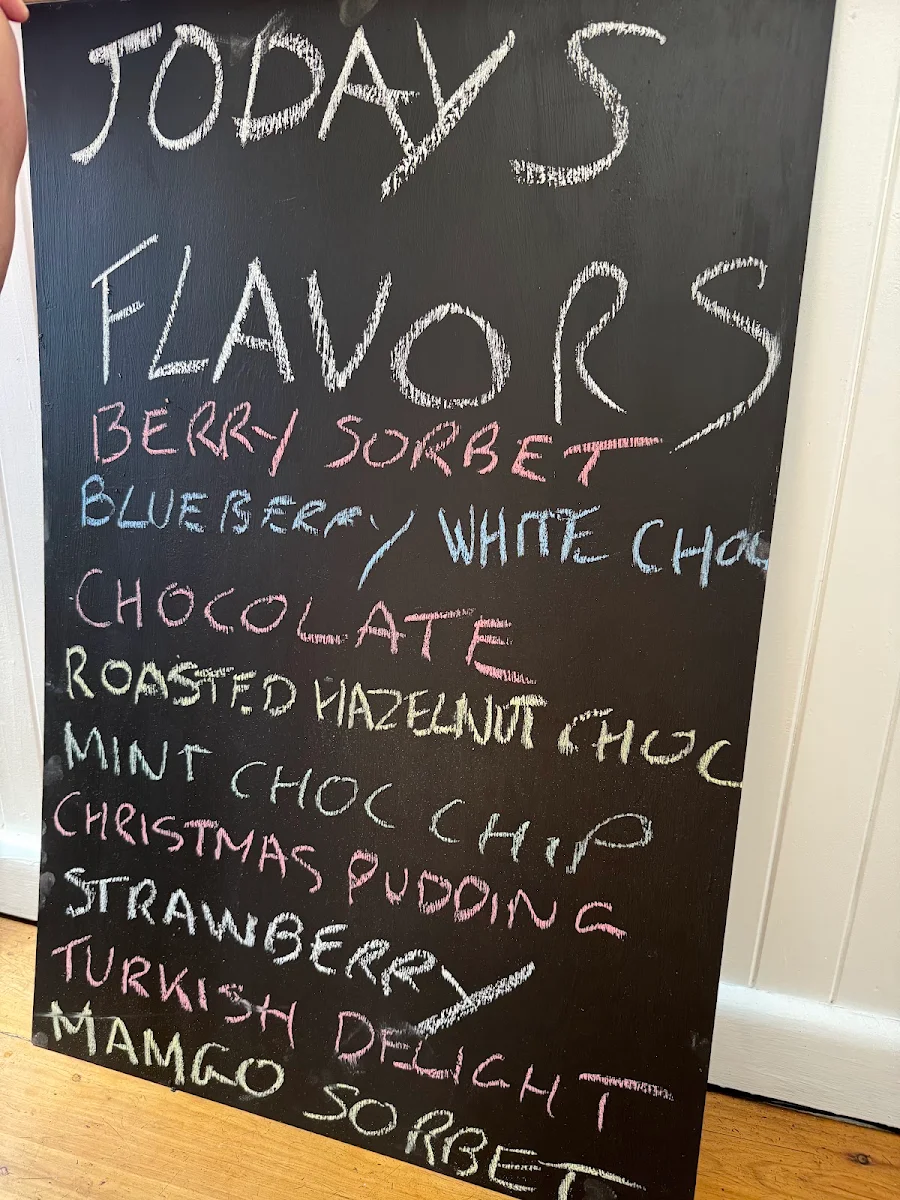 TODAYS
FLAVORS
BERRY SORBET
BLUEBERRY WHITE CHOC
CHOCOLATE
ROASTED HAZELNUT CHOC
MINT CHOC CHIP
CHRISTMAS PUDDING
STRAWBERRY
TURKISH DELIGHT
MAMGO SORBET